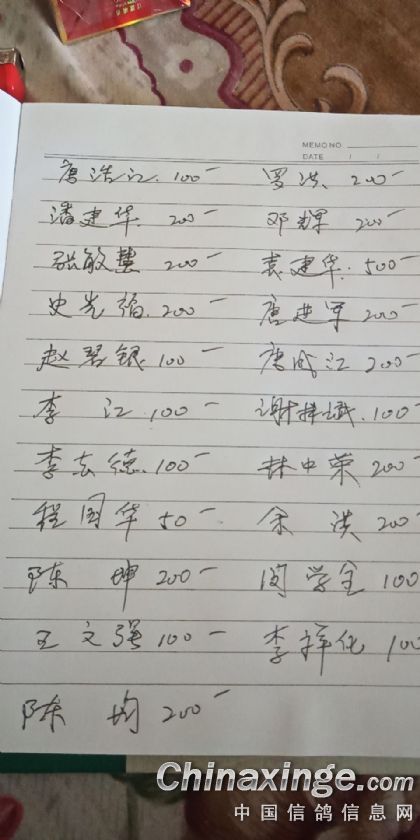 MEMO NO.
DATE / /
唐浩江. 100一 罗洪. 200一
潘建华. 200一 邓辉 200一
张敏慧 200一 袁建华. 500一
史光福. 200一 唐进军 200一
赵碧银. 100一 唐成江 200一
李 江. 100一 谢择斌. 100
李志德. 100一 林中荣 200
程国华 50一 余 洪 200
陈 坤 200一 闵学全 100
王文强 100一 李祥化 100
陈 均 200一
Chinaxinge.com
中国信鸽信息网